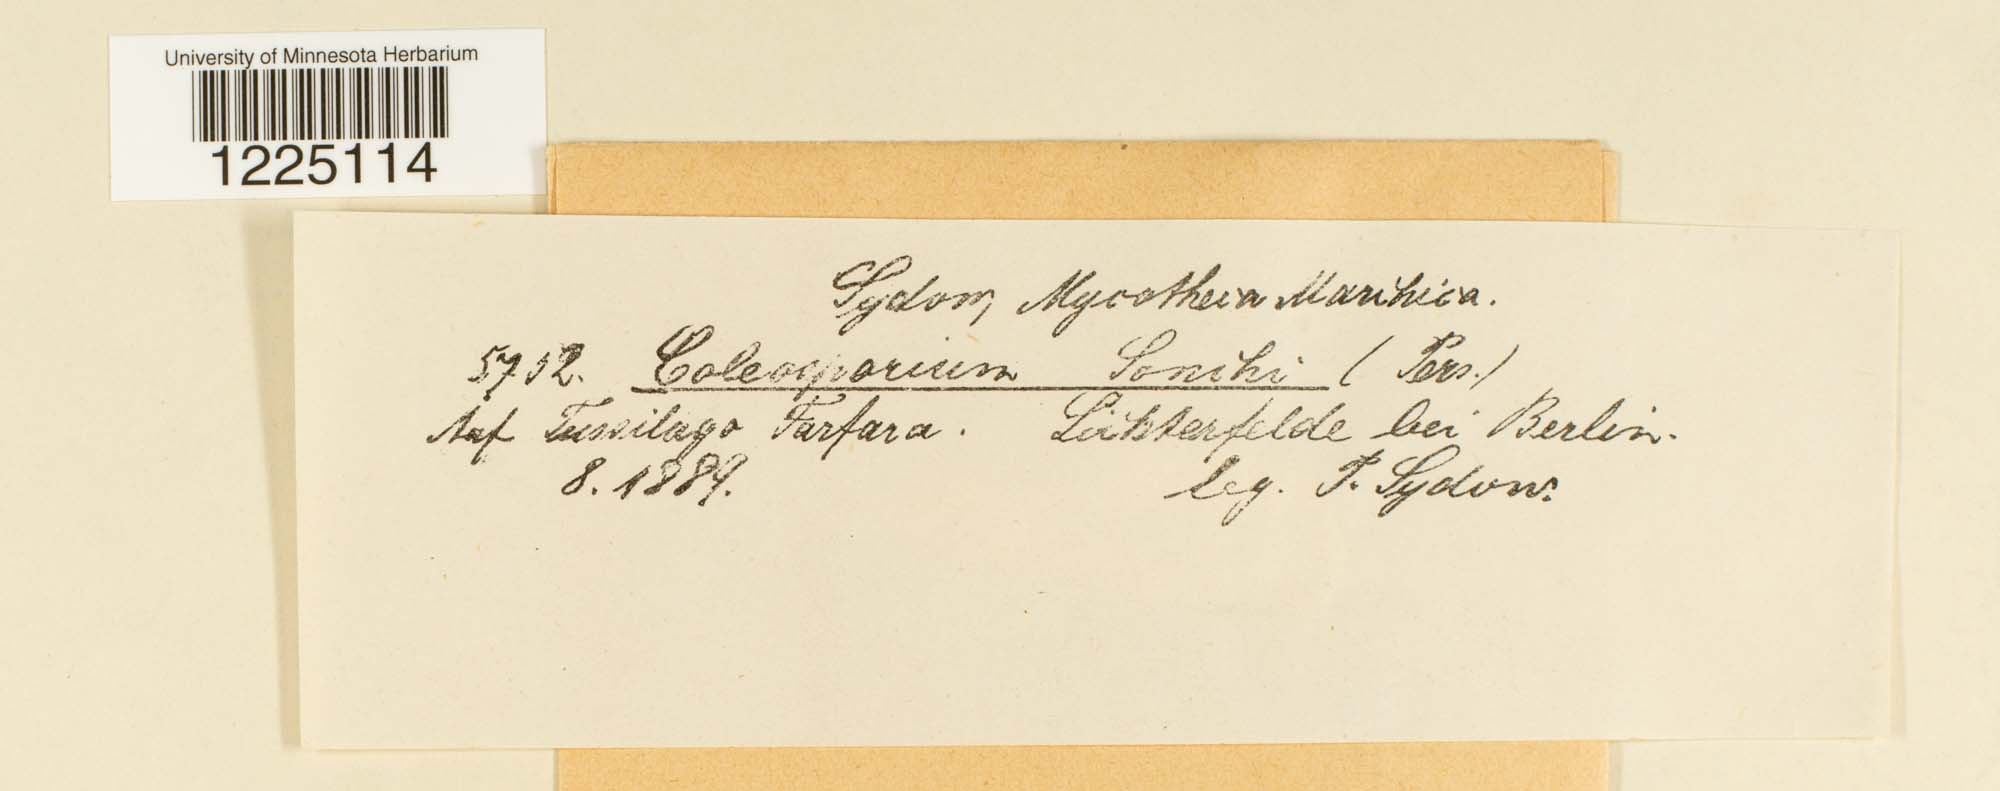 University of Minnesota Herbarium
1225114
Sydow, Mycotheca Marchica.
Coleosporium Sonchi (Pers.)
Auf Tussilago Farfara. Lichterfelde bei Berlin.
8. 1889. leg. P. Sydow.